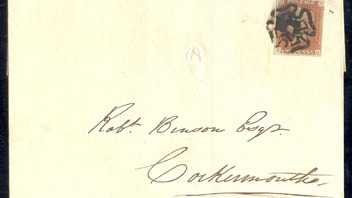 POSTAGE
Robt. Benson Esqr.
Cockermouth